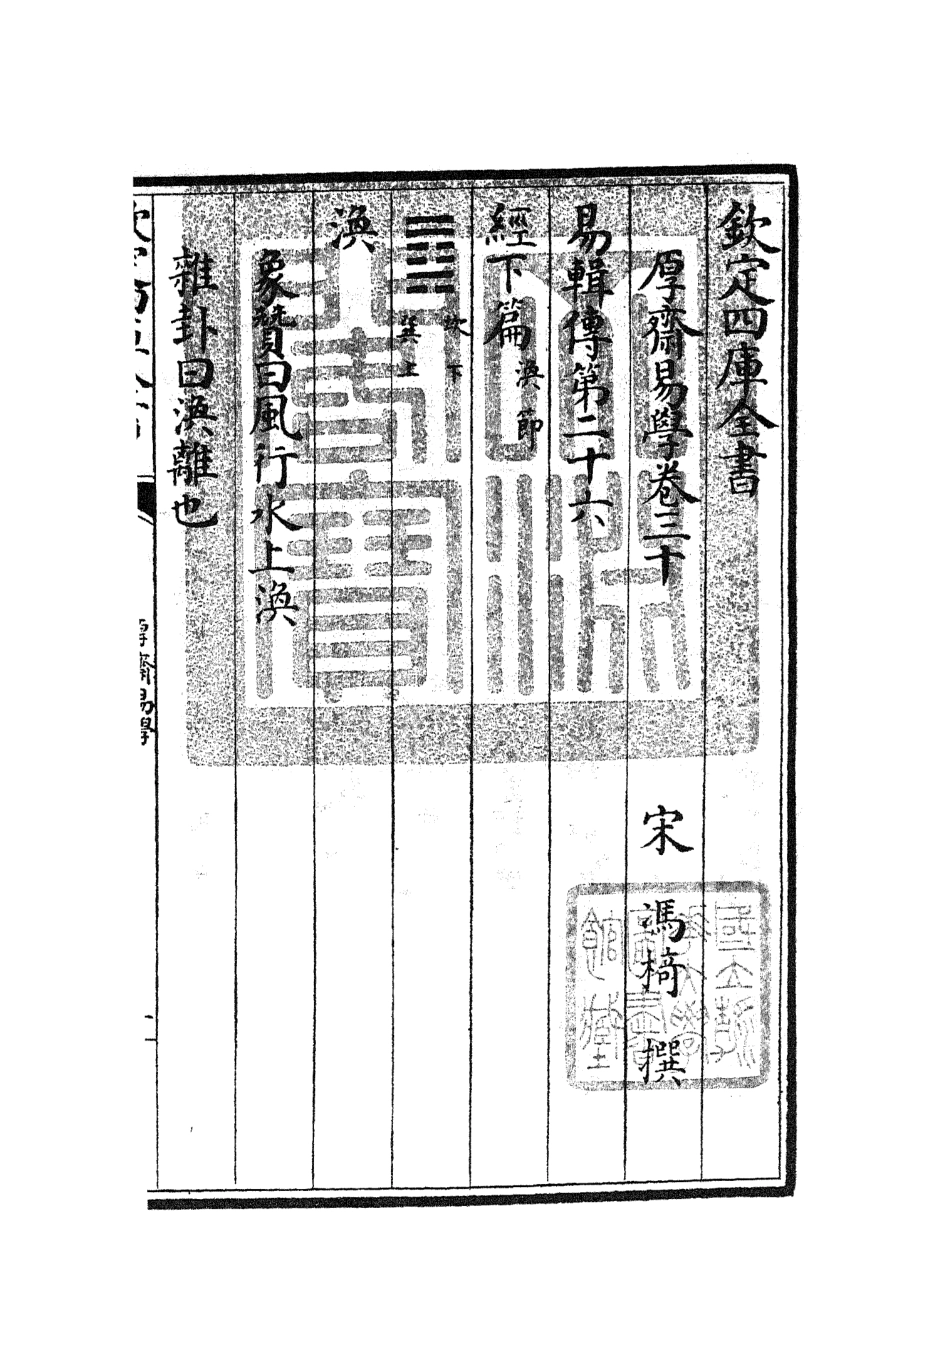 欽定四庫全書
厚齋易學卷三十
宋 馮椅 撰
易輯傳第二十六
經下篇 渙 節
坎下
巽上
渙
象贊曰風行水上渙
雜卦曰渙離也
厚齋易學